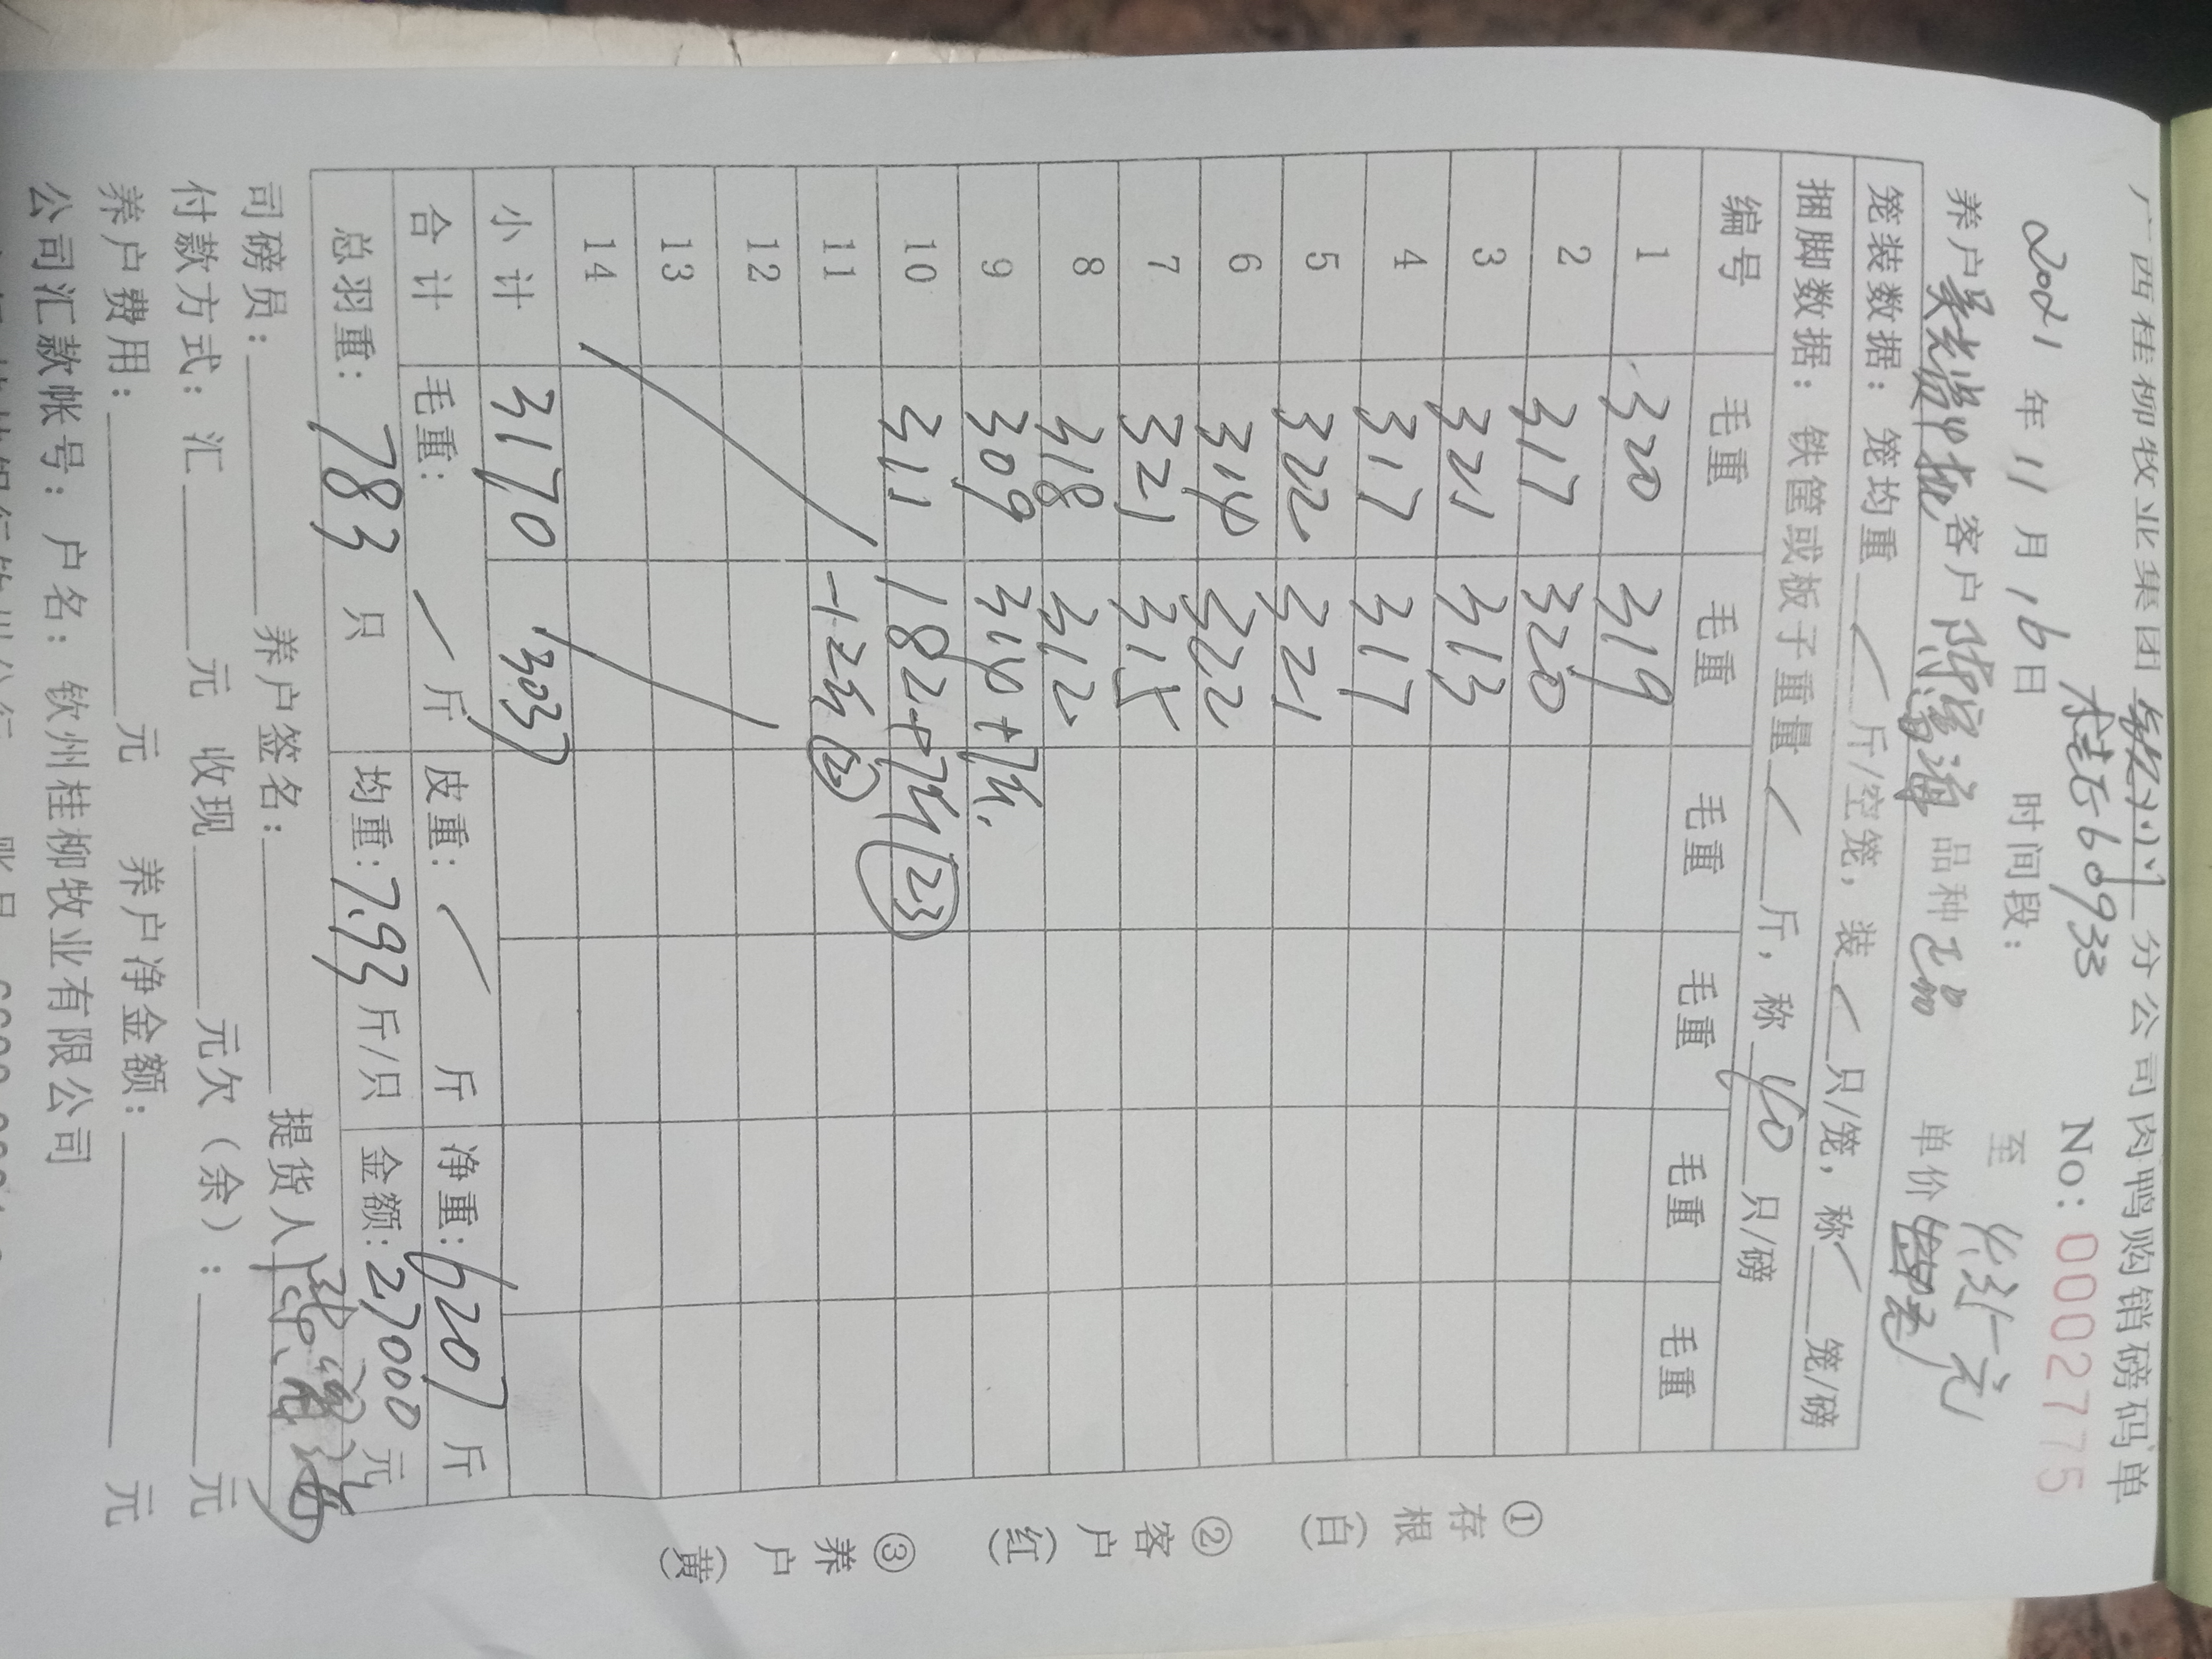 广西桂柳牧业集团 钦州 分公司肉鸭购销磅码单
桂E60933 No:0002775
2021 年 11 月 16 日 时间段: 至
养户 客户 陈富海 品种 毛品 单价
笼装数据: 笼均重 / 斤/空笼, 装 / 只/笼, 称 / 笼/磅
捆脚数据: 铁筐或板子重量 / 斤, 称 40 只/磅
编号 毛重 毛重 毛重 毛重 毛重 毛重
1 320 319
2 317 320
3 321 313
4 317 317
5 322 321
6 314 322
7 321 315
8 318 312
9 309 314
10 311 182 23
11 -123
12
13
14
小计 3170 3037
合计 毛重: / 斤 皮重: / 斤 净重: 6207 斤
总羽重: 783 只 均重: 7.93 斤/只 金额: 27000 元
司磅员: 养户签名: 提货人 陈富海
付款方式: 汇 元 收现 元欠(余): 元
养户费用: 元 养户净金额: 元
公司汇款帐号: 户名: 钦州桂柳牧业有限公司
①存根(白) ②客户(红) ③养户(黄)